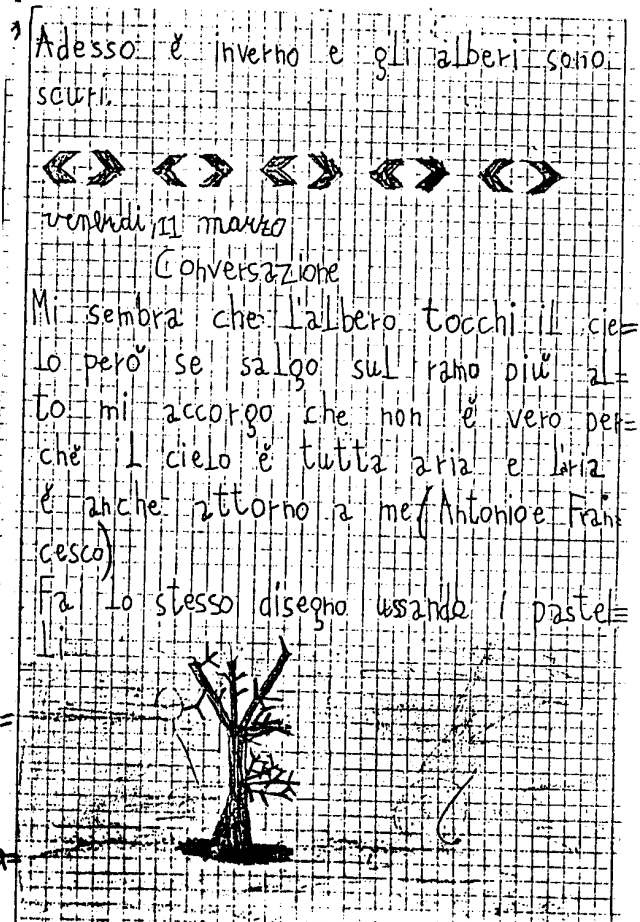 Adesso è inverno e gli alberi sono
scuri.
venerdì, 11 marzo
Conversazione
Mi sembra che l'albero tocchi il cie=
lo però se salgo sul ramo più al=
to mi accorgo che non è vero per=
ché il cielo è tutta aria e l'aria
è anche attorno a me (Antonio e Fran=
cesco)
Fa lo stesso disegno ussando i pastel=
li